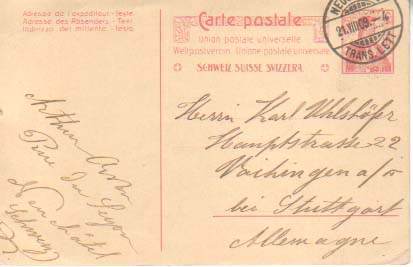 Adresse de l'expéditeur - Texte
Adresse des Absenders - Text
Indirizzo del mittente - Testo
Carte postale
Union postale universelle
Weltpostverein. Unione postale universale
SCHWEIZ SUISSE SVIZZERA
21.VIII.09.-4
TRANS. LETT
Herrn Karl Uhlshöfer
Hauptstrasse 22
Vaihingen a/
bei Stuttgart
Allemagne
Arthur
Rue du Seyon
Neuchâtel